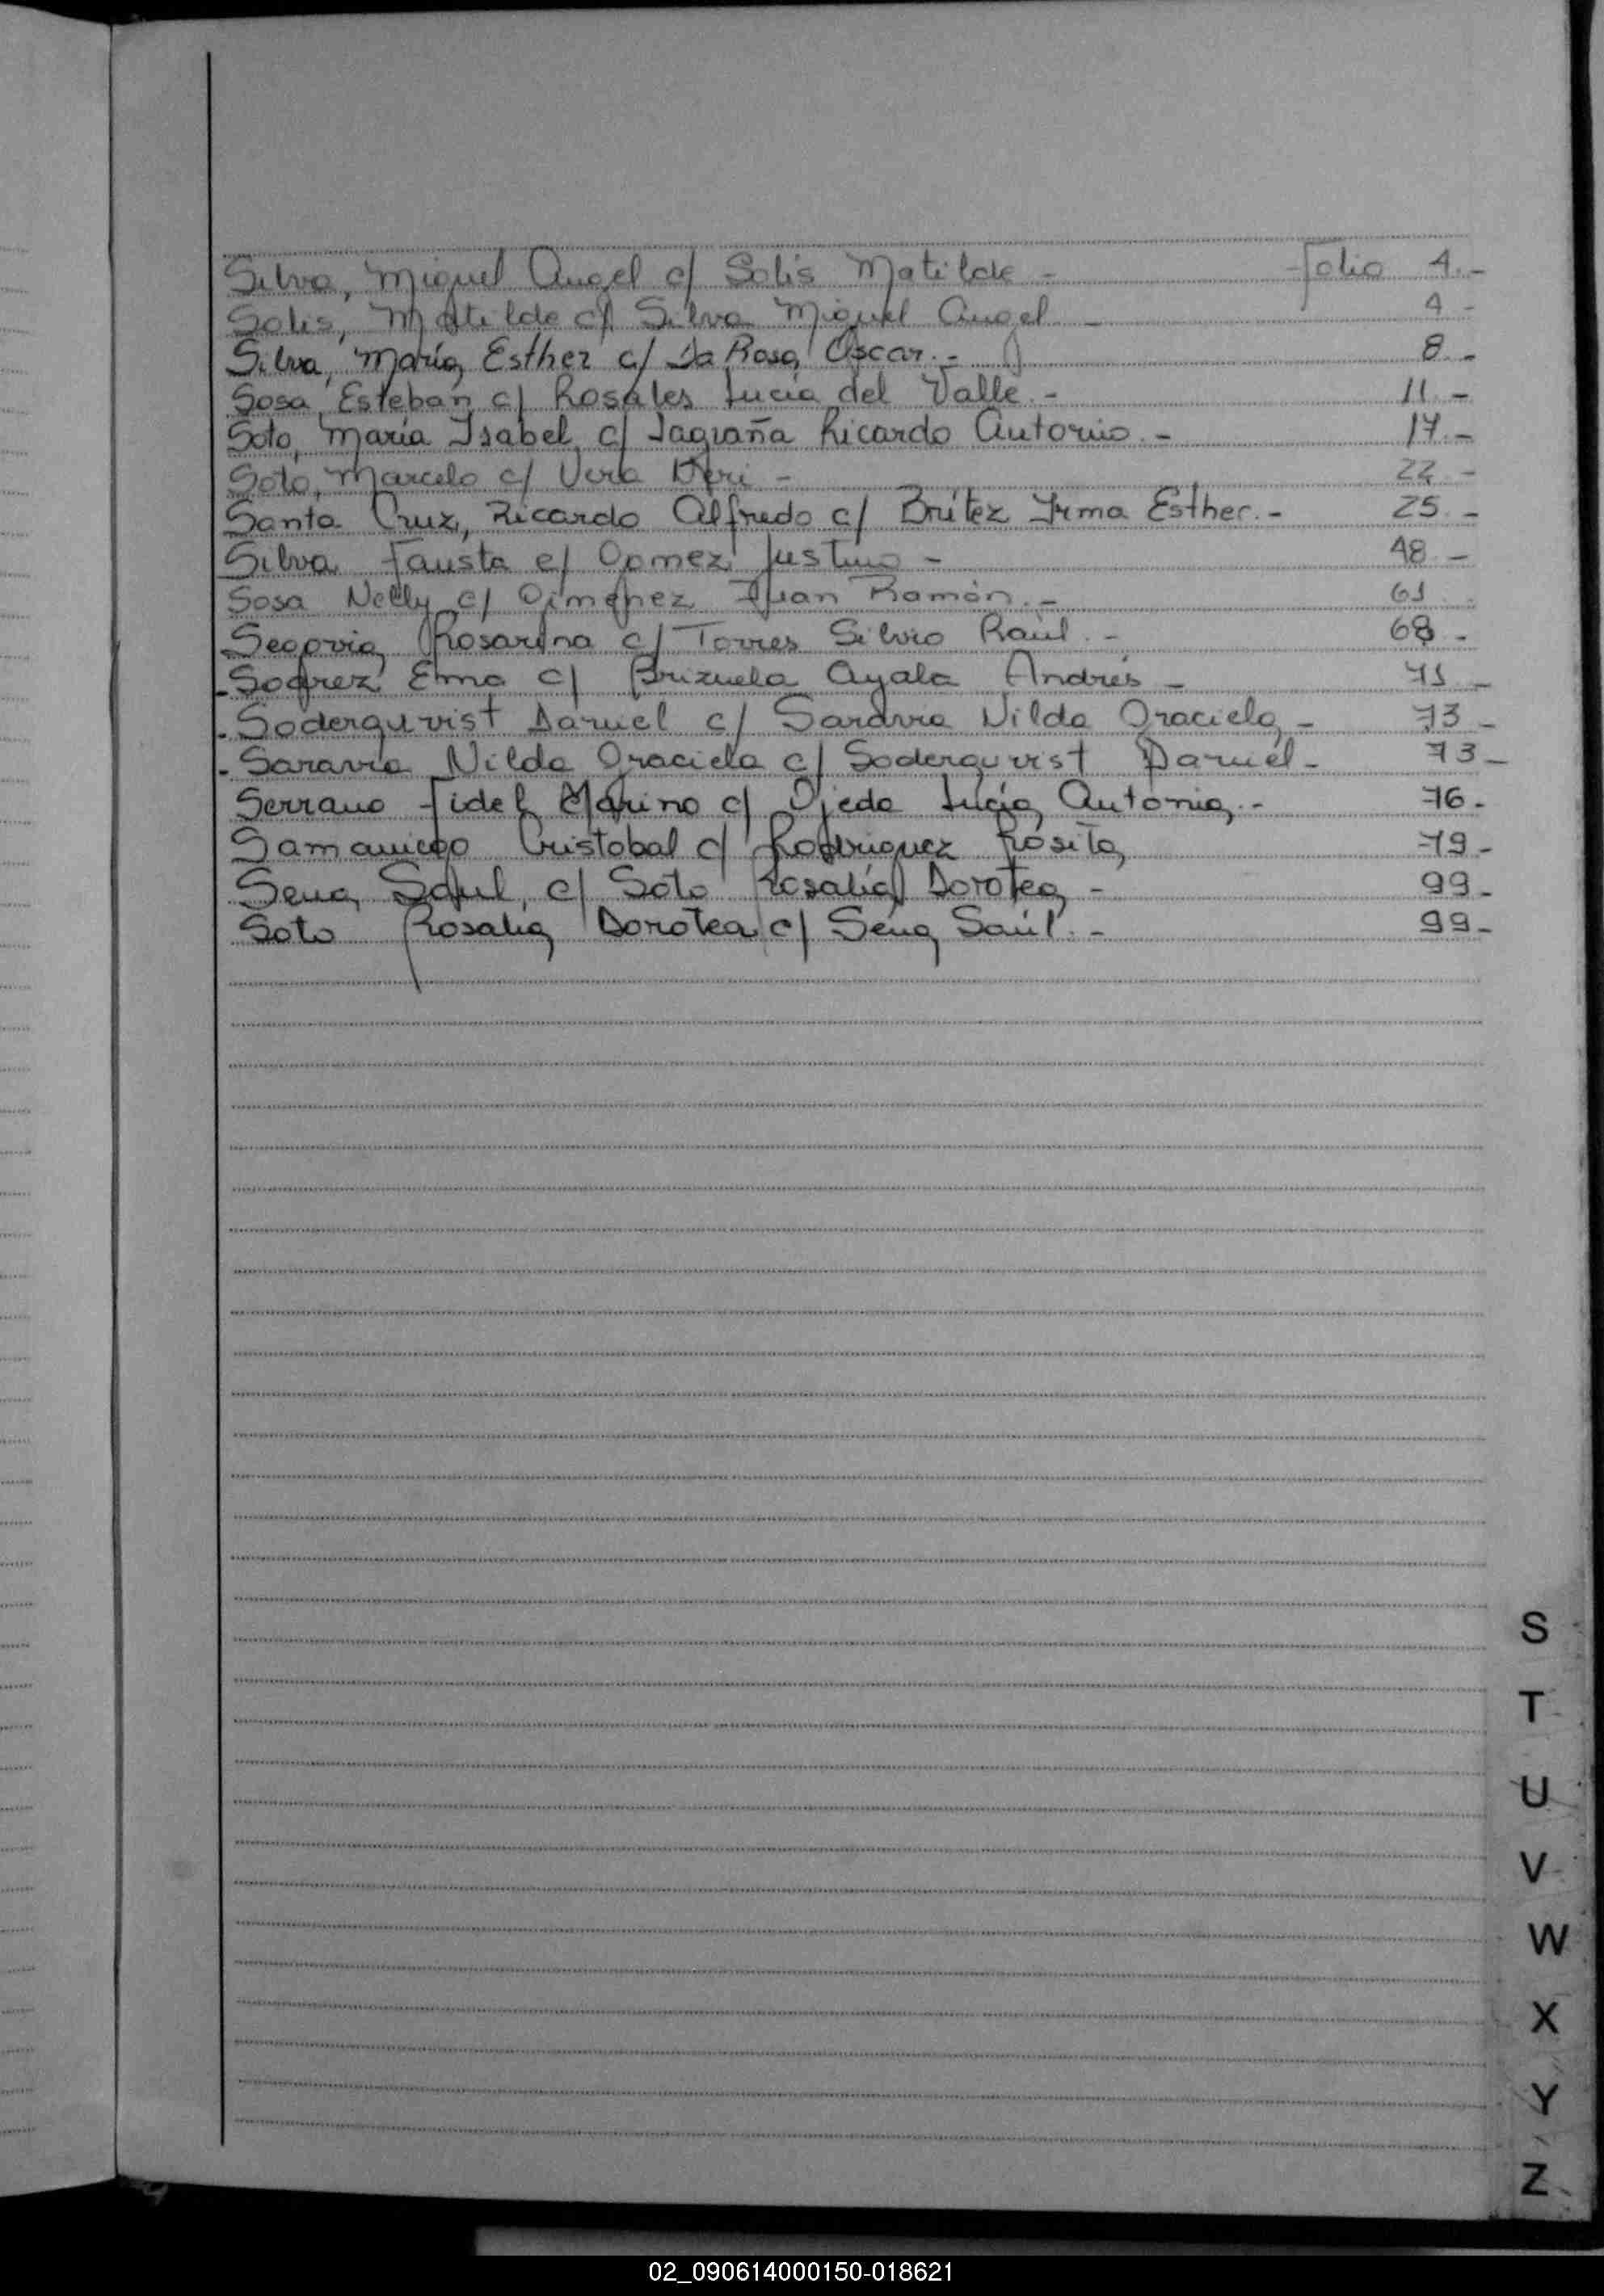 Silva, Miguel Angel c/ Solis Matilde - folio 4.-
Solis, Matilde c/ Silva Miguel Angel - 4 -
Silva, María Esther c/ Da Rosa Oscar.- 8.-
Sosa, Esteban c/ Rosales Lucía del Valle.- 11.-
Soto, María Isabel c/ Lagraña Ricardo Antonio.- 17.-
Soto, Marcelo c/ Vera Neri - 22.-
Santa Cruz, Ricardo Alfredo c/ Brítez Irma Esther.- 25.-
Silva Fausta c/ Gomez Justino - 48 -
Sosa Nelly c/ Gimenez Juan Ramón.- 61
Segovia Rosarina c/ Torres Silvio Raúl.- 68.-
-Soarez Elma c/ Brizuela Ayala Andrés - 71 -
.Soderquvist Daniel c/ Saravia Nilda Graciela - 73 -
-Saravia Nilda Graciela c/ Soderquvist Daniel - 73 -
Serrano Fidel Marino c/ Ojeda Lucía Antonia.- 76.-
Samaniego Cristobal c/ Rodriguez Rosita, 79.-
Sena, Saúl, c/ Soto Rosalía Dorotea - 99.-
Soto Rosalia Dorotea c/ Sena Saúl.- 99-
S
T
U
V
W
X
Y
Z
02_090614000150-018621